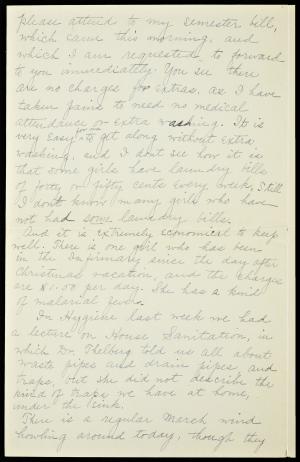 please attend to my semester bill,
which came this morning, and
which I am requested to forward
to you immediately. You see there
are no charges for extras, as I have
taken pains to need no medical
attendance or extra washing. It is
very easy for me to get along without extra
washing, and I dont see how it is
that some girls have laundry bills
of forty or fifty cents every week. Still
I don't know many girls who have
not had some laundry bills.
And it is extremely economical to keep
well. There is one girl who has been
in the Infirmary since the day after
Christmas vacation, and the charges
are $1.50 per day. She has a kind
of malarial fever.
In Hygiene last week we had
a lecture on House Sanitation, in
which Dr. Thelberg told us all about
waste pipes and drain pipes, and
traps, but she did not describe the
kind of traps we have at home,
under the sink.
There is a regular March wind
howling around today, though they